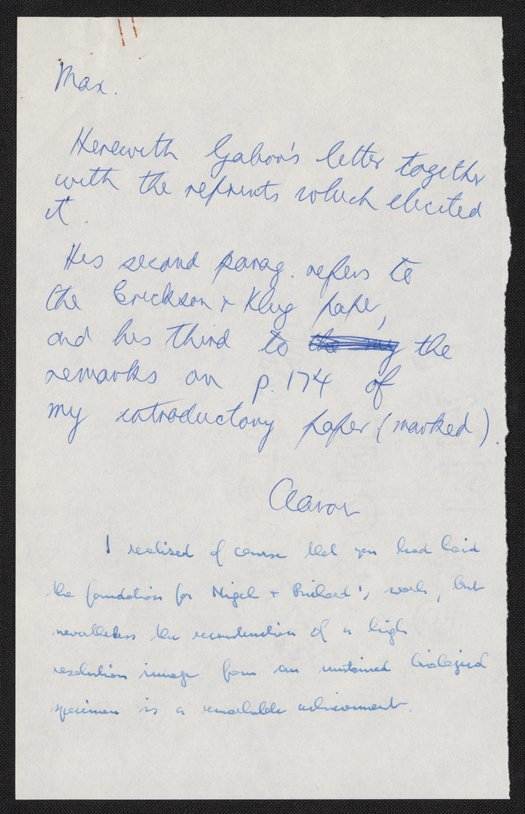 Max.
Herewith Gabor's letter together
with the reprints which elicited
it.
His second parag. refers to
the Erickson & Klug paper,
and his third to the my the
remarks on p. 174 of
my introductory paper (marked).
Aaron
I realised of course that you had laid
the foundation for Nigel & Richard's work, but
nevertheless the reconstruction of a high
resolution image from an unstained biological
specimen is a remarkable achievement.